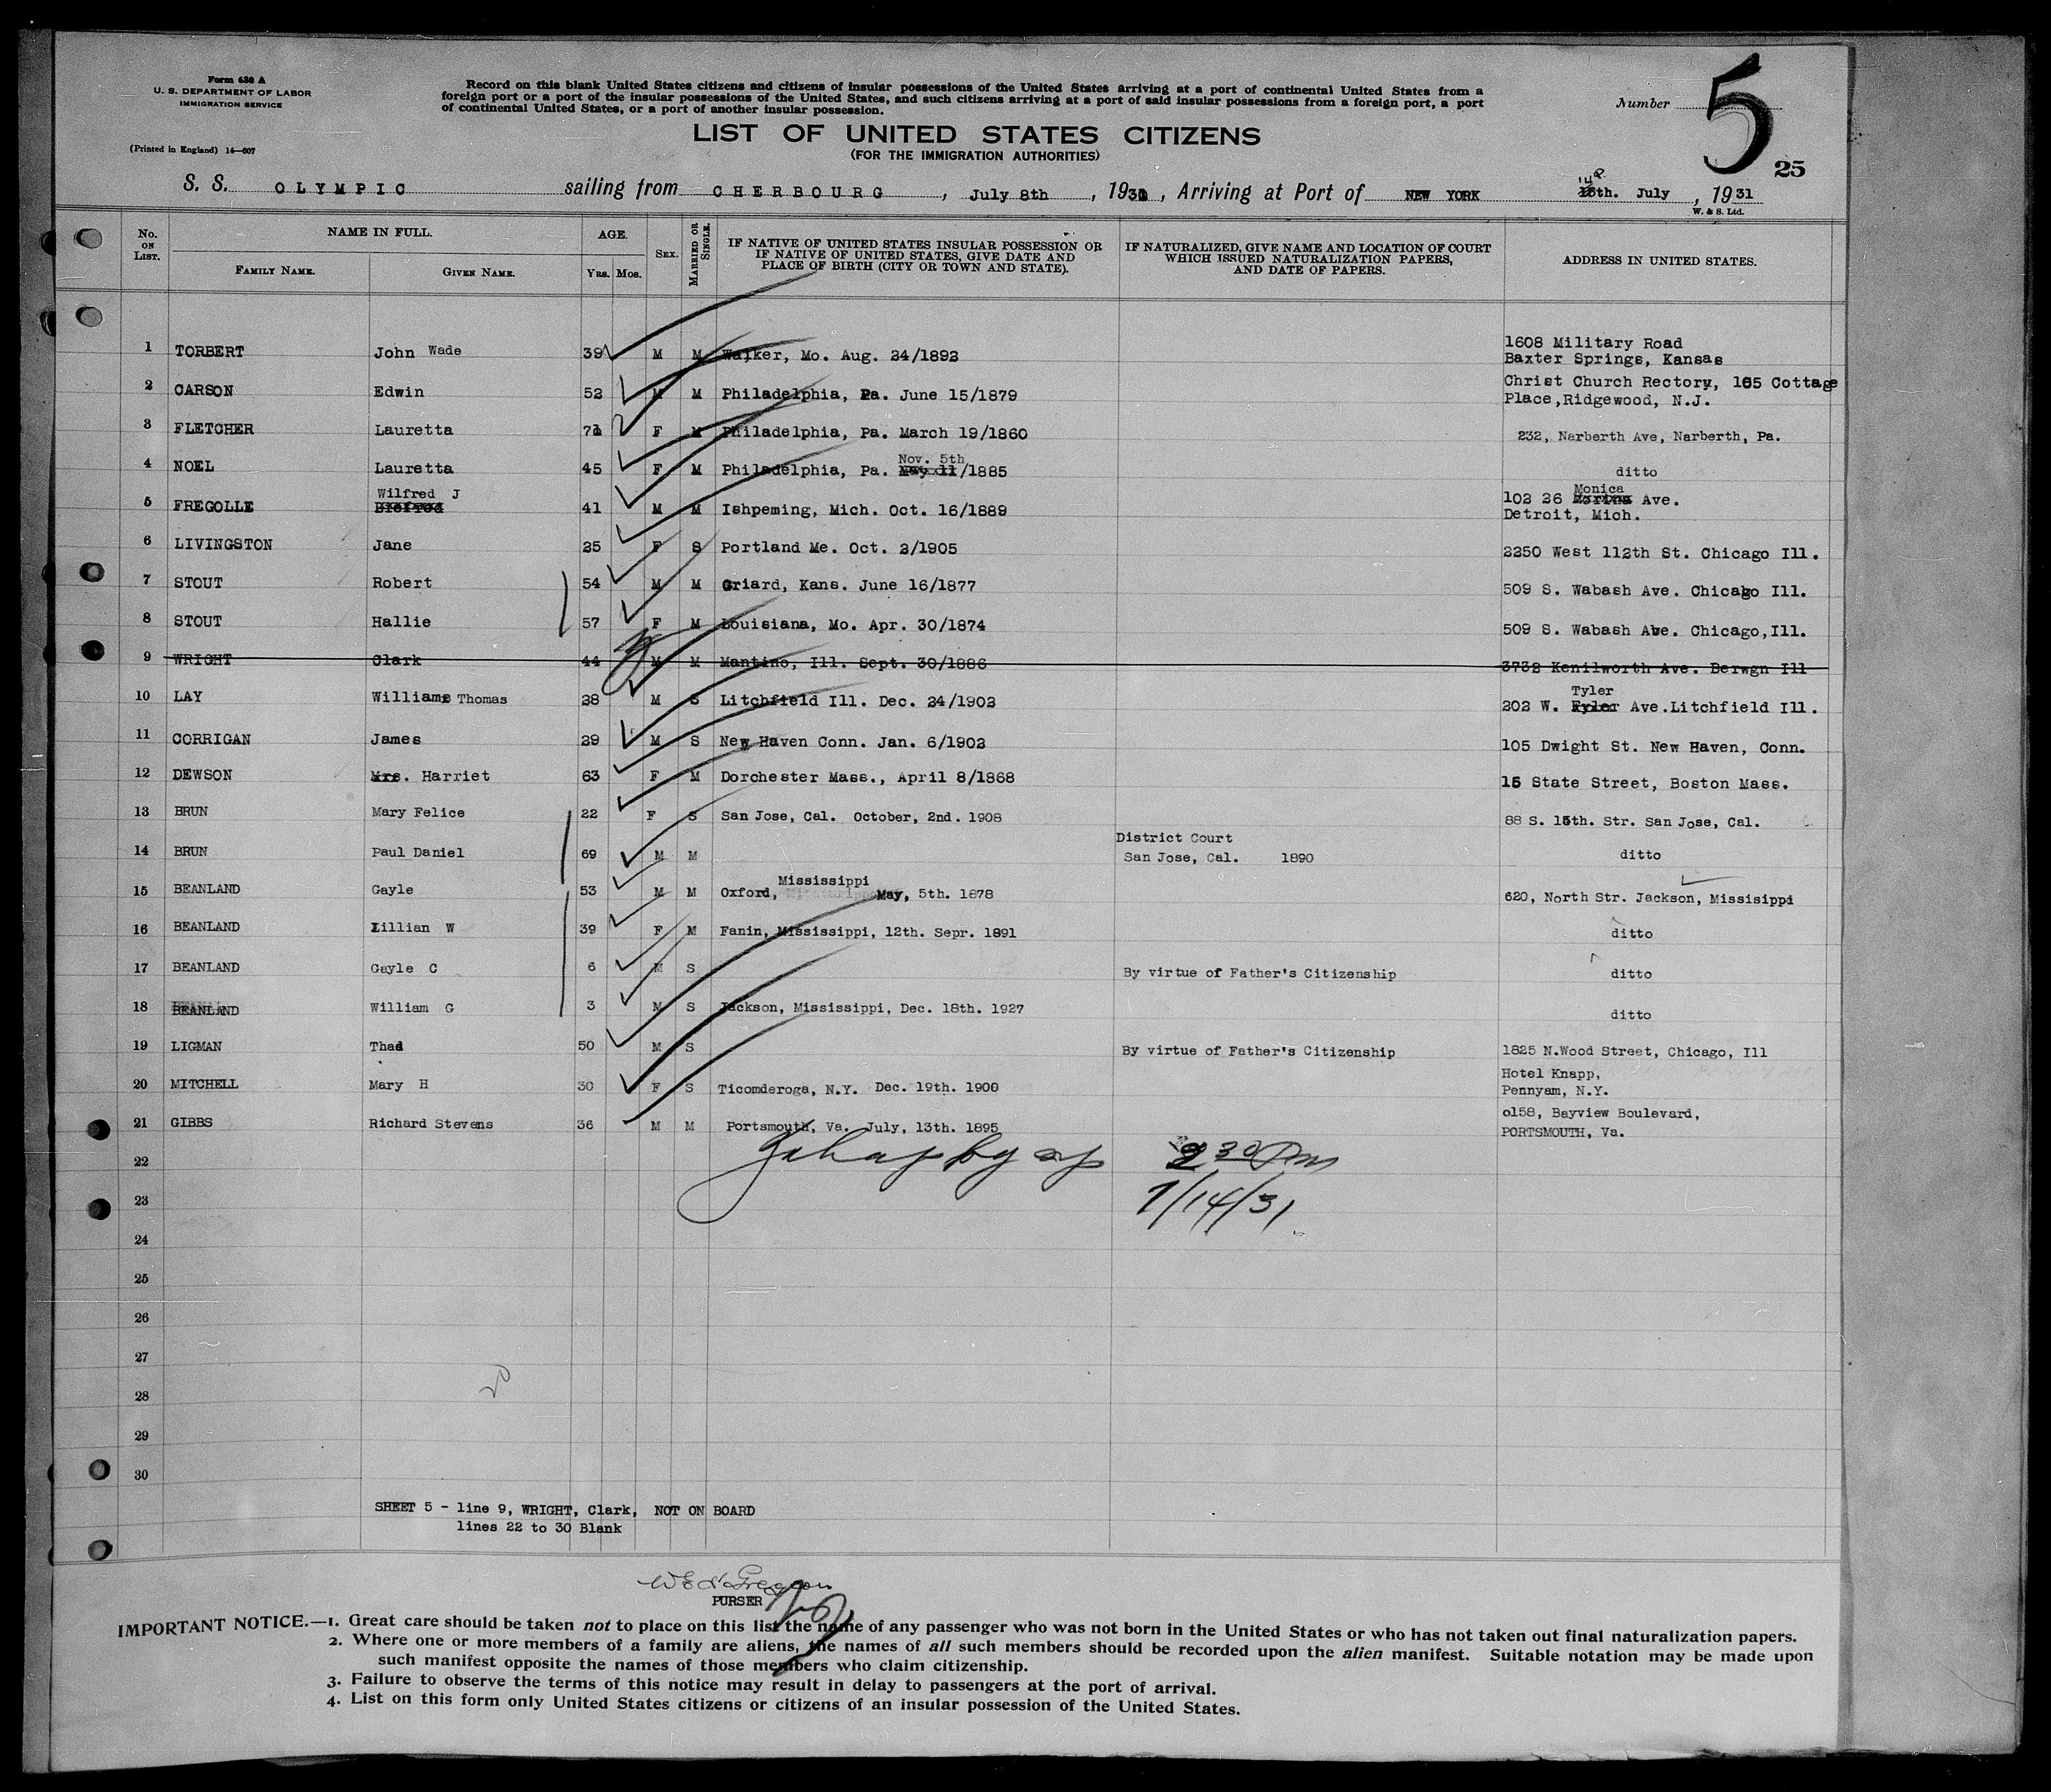 Form 630 A
U. S. DEPARTMENT OF LABOR
IMMIGRATION SERVICE
(Printed in England) 14—607
Record on this blank United States citizens and citizens of insular possessions of the United States arriving at a port of continental United States from a
foreign port or a port of the insular possessions of the United States, and such citizens arriving at a port of said insular possessions from a foreign port, a port
of continental United States, or a port of another insular possession.
Number 5
25
LIST OF UNITED STATES CITIZENS
(FOR THE IMMIGRATION AUTHORITIES)
S. S. OLYMPIC sailing from CHERBOURG, July 8th, 1931, Arriving at Port of NEW YORK 14 th. July, 1931
W. & S. Ltd.
No. ON LIST. NAME IN FULL. FAMILY NAME. GIVEN NAME. AGE. YRS. MOS. SEX. MARRIED OR SINGLE. IF NATIVE OF UNITED STATES INSULAR POSSESSION OR IF NATIVE OF UNITED STATES, GIVE DATE AND PLACE OF BIRTH (CITY OR TOWN AND STATE). IF NATURALIZED, GIVE NAME AND LOCATION OF COURT WHICH ISSUED NATURALIZATION PAPERS, AND DATE OF PAPERS. ADDRESS IN UNITED STATES.
1 TORBERT John Wade 39 M M Walker, Mo. Aug. 24/1892 1608 Military Road
Baxter Springs, Kansas
2 CARSON Edwin 52 M M Philadelphia, Pa. June 15/1879 Christ Church Rectory, 105 Cottage
Place, Ridgewood, N.J.
3 FLETCHER Lauretta 71 F M Philadelphia, Pa. March 19/1860 232, Narberth Ave, Narberth, Pa.
4 NOEL Lauretta 45 F M Philadelphia, Pa. Nov. 5th May 11/1885 ditto
5 FREGOLLE Wilfred J 41 M M Ishpeming, Mich. Oct. 16/1889 102 26 Monica Ave.
Detroit, Mich.
6 LIVINGSTON Jane 25 F S Portland Me. Oct. 2/1905 2250 West 112th St. Chicago Ill.
7 STOUT Robert 54 M M Griard, Kans. June 16/1877 509 S. Wabash Ave. Chicago Ill.
8 STOUT Hallie 57 F M Louisiana, Mo. Apr. 30/1874 509 S. Wabash Ave. Chicago, Ill.
9 WRIGHT Clark 44 M M Mantino, Ill. Sept. 30/1886 3732 Kenilworth Ave. Berwgn Ill
10 LAY William Thomas 28 M S Litchfield Ill. Dec. 24/1902 202 W. Tyler Ave. Litchfield Ill.
11 CORRIGAN James 29 M S New Haven Conn. Jan. 6/1902 105 Dwight St. New Haven, Conn.
12 DEWSON Mrs. Harriet 63 F M Dorchester Mass., April 8/1868 15 State Street, Boston Mass.
13 BRUN Mary Felice 22 F S San Jose, Cal. October, 2nd. 1908 88 S. 15th. Str. San Jose, Cal.
14 BRUN Paul Daniel 69 M M District Court
San Jose, Cal. 1890 ditto
15 BEANLAND Gayle 53 M M Oxford, Mississippi May, 5th. 1878 620, North Str. Jackson, Missisippi
16 BEANLAND Lillian W 39 F M Fanin, Mississippi, 12th. Sepr. 1891 ditto
17 BEANLAND Gayle C 6 M S By virtue of Father's Citizenship ditto
18 BEANLAND William G 3 M S Jackson, Mississippi, Dec. 18th. 1927 ditto
19 LIGMAN Thad 50 M S By virtue of Father's Citizenship 1825 N.Wood Street, Chicago, Ill
20 MITCHELL Mary H 30 F S Ticomderoga, N.Y. Dec. 19th. 1900 Hotel Knapp,
Pennyam, N.Y.
21 GIBBS Richard Stevens 36 M M Portsmouth, Va. July, 13th. 1895 o158, Bayview Boulevard,
PORTSMOUTH, Va.
22 2 30 Pm
23 7/14/31
24
25
26
27
28
29
30
20
SHEET 5 - line 9, WRIGHT, Clark, NOT ON BOARD
lines 22 to 30 Blank
PURSER
IMPORTANT NOTICE.—1. Great care should be taken not to place on this list the name of any passenger who was not born in the United States or who has not taken out final naturalization papers.
2. Where one or more members of a family are aliens, the names of all such members should be recorded upon the alien manifest. Suitable notation may be made upon
such manifest opposite the names of those members who claim citizenship.
3. Failure to observe the terms of this notice may result in delay to passengers at the port of arrival.
4. List on this form only United States citizens or citizens of an insular possession of the United States.